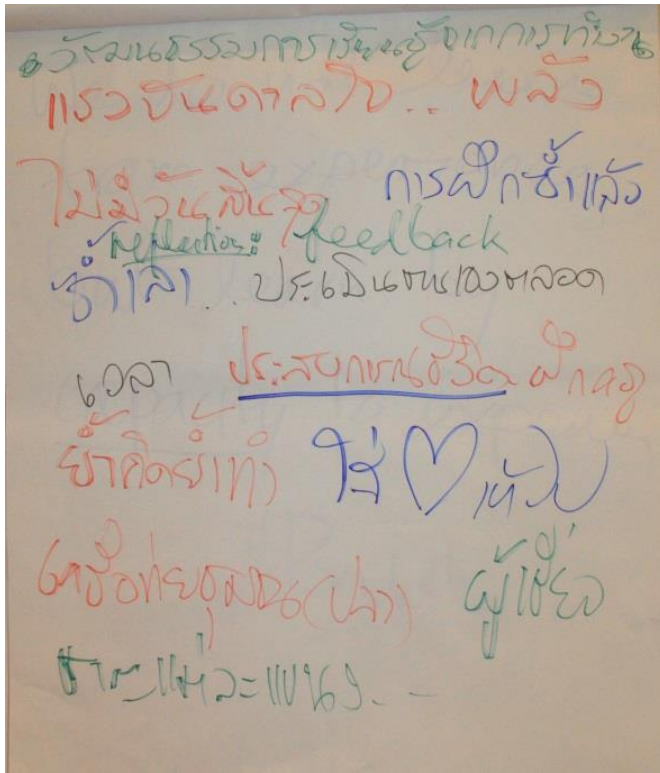 วัฒนธรรมการเรียนรู้จากการทำงาน
แรงบันดาลใจ.. พลัง
ไม่มีวันสิ้นสุด การฝึกซ้ำแล้ว
reflection: feedback
ซ้ำเล่า.. ประเมินตนเองตลอด
เวลา ประสบการณ์ชีวิต ฝึกคิด
ย้ำคิดย้ำทำ ใส่ ♡ เข้าไป
เครือข่ายชุมชน ผู้เชี่ยว
ชาญแต่ละแขนง..